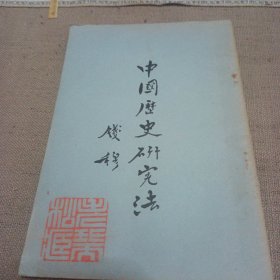 中國歷史研究法
錢穆